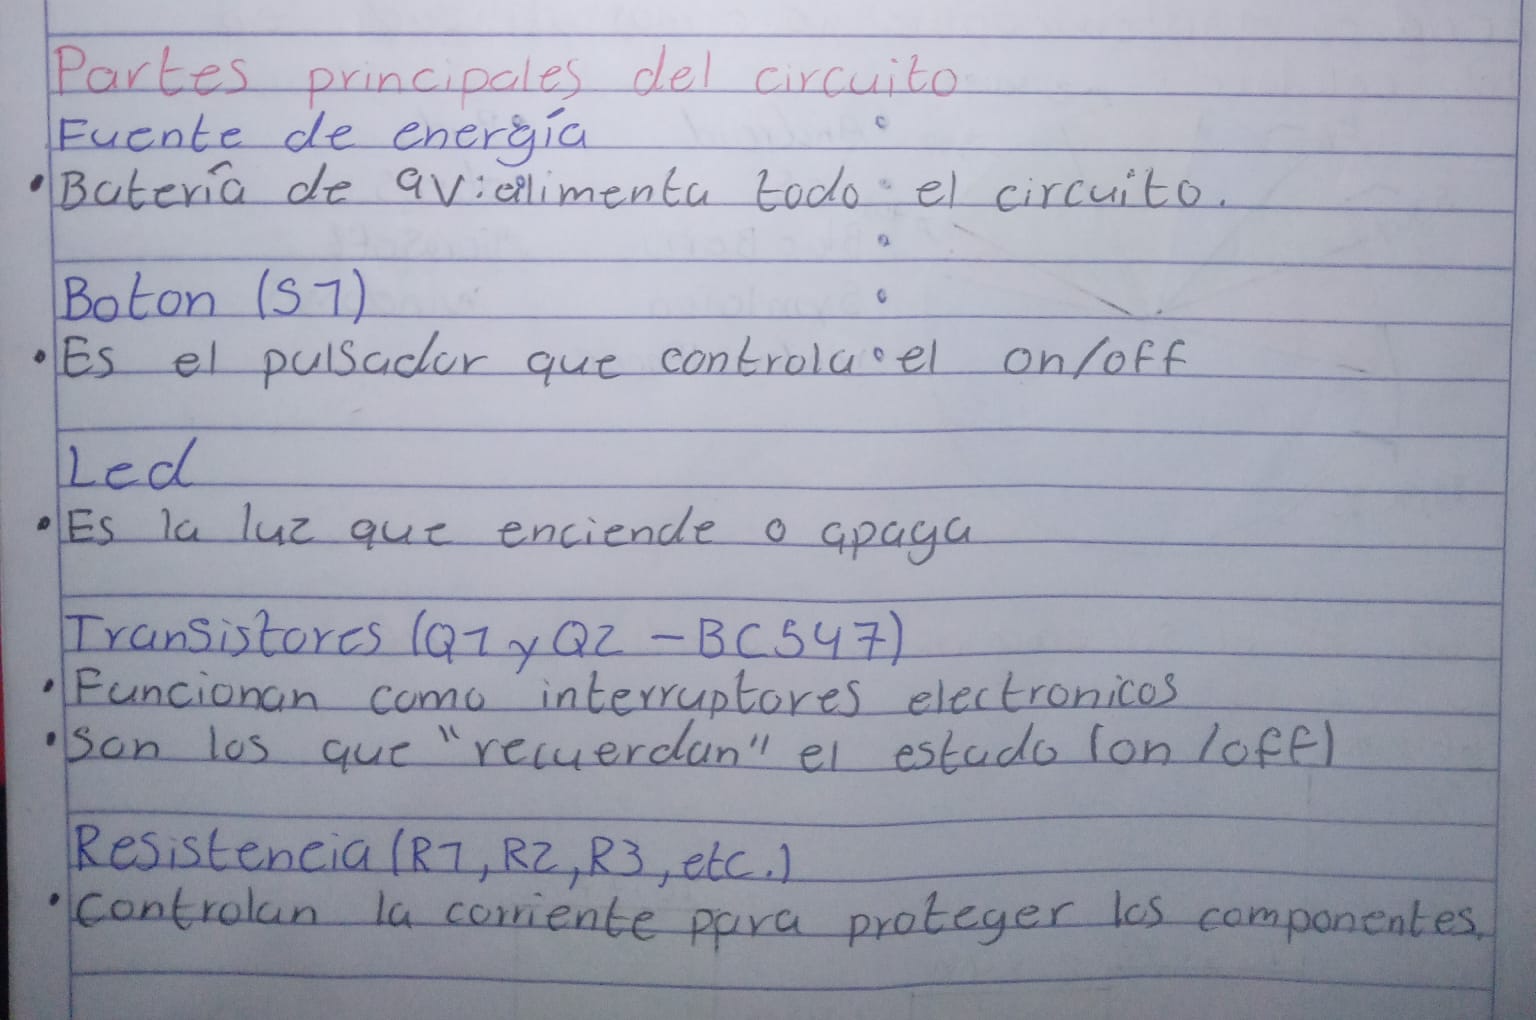 Partes principales del circuito
Fuente de energía
• Batería de 9v: alimenta todo el circuito.
Boton (S1)
• Es el pulsador que controla el on/off
Led
• Es la luz que enciende o apaga
Transistores (Q1 y Q2 - BC547)
• Funcionan como interruptores electronicos
• Son los que "recuerdan" el estado (on/off)
Resistencia (R1, R2, R3, etc.)
• Controlan la corriente para proteger los componentes.